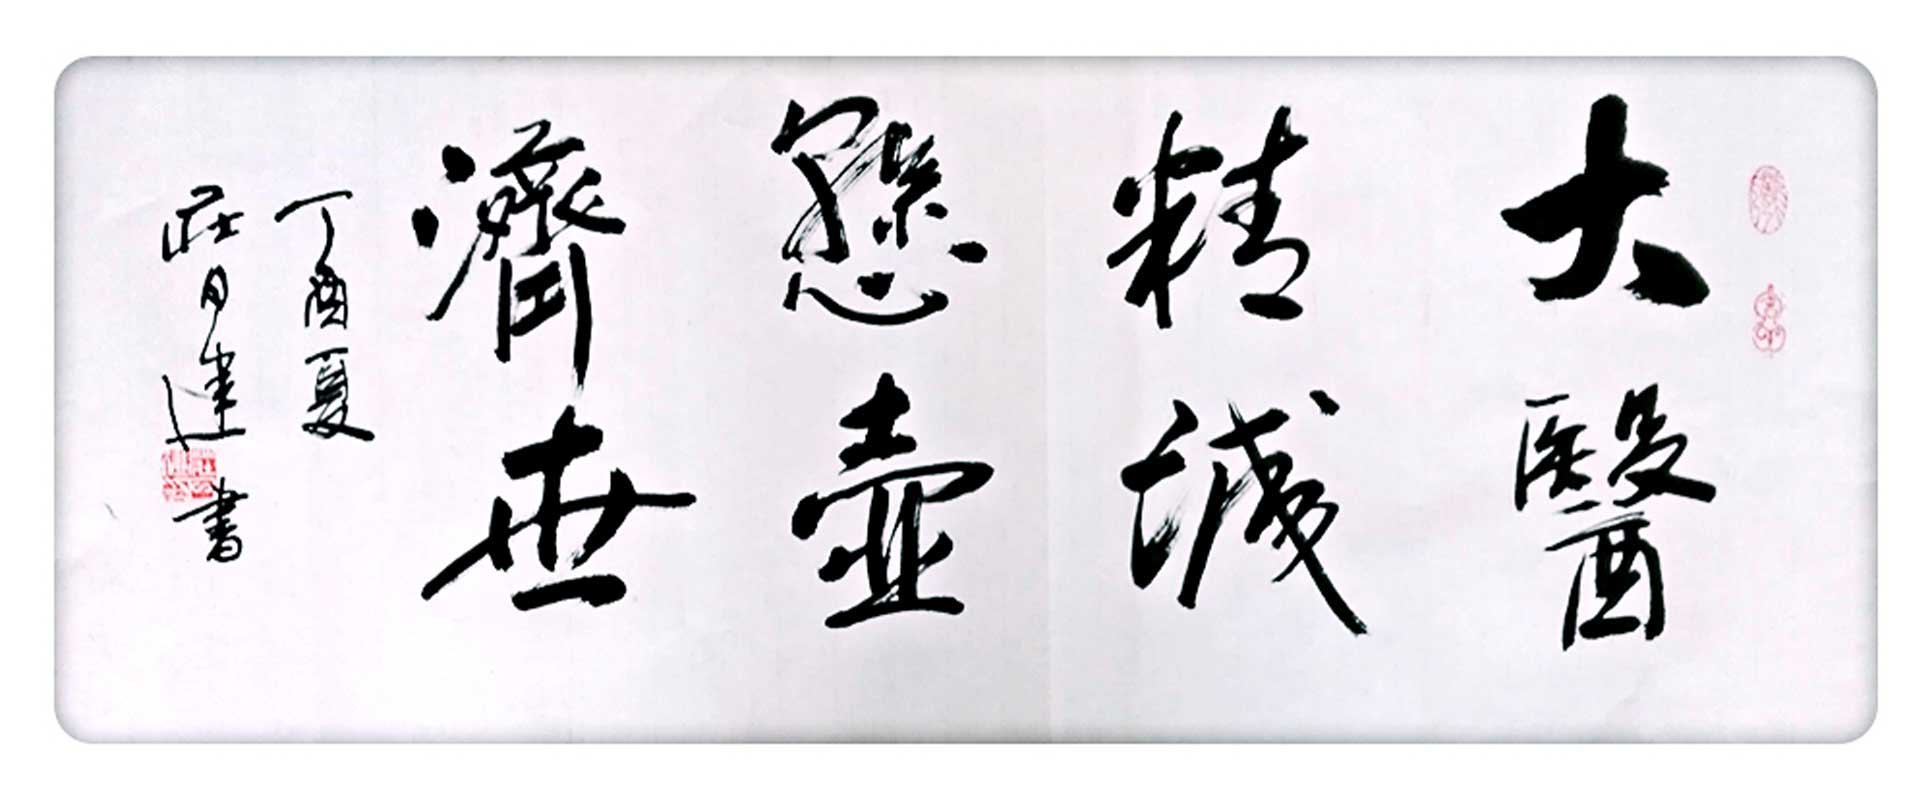 大醫
精誠
懸壺
濟世
丁酉夏
莊日達書